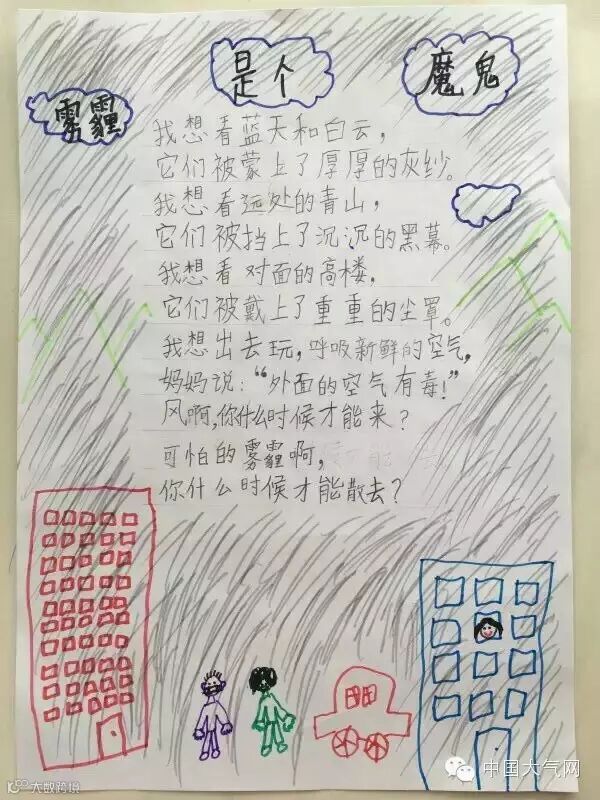 雾霾
是个
魔鬼
我想看蓝天和白云，
它们被蒙上了厚厚的灰纱。
我想看远处的青山，
它们被挡上了沉沉的黑幕。
我想看对面的高楼，
它们被戴上了重重的尘罩。
我想出去玩，呼吸新鲜的空气，
妈妈说：“外面的空气有毒！”
风啊，你什么时候才能来？
可怕的雾霾啊，
你什么时候才能散去？
中国大气网
大数跨境